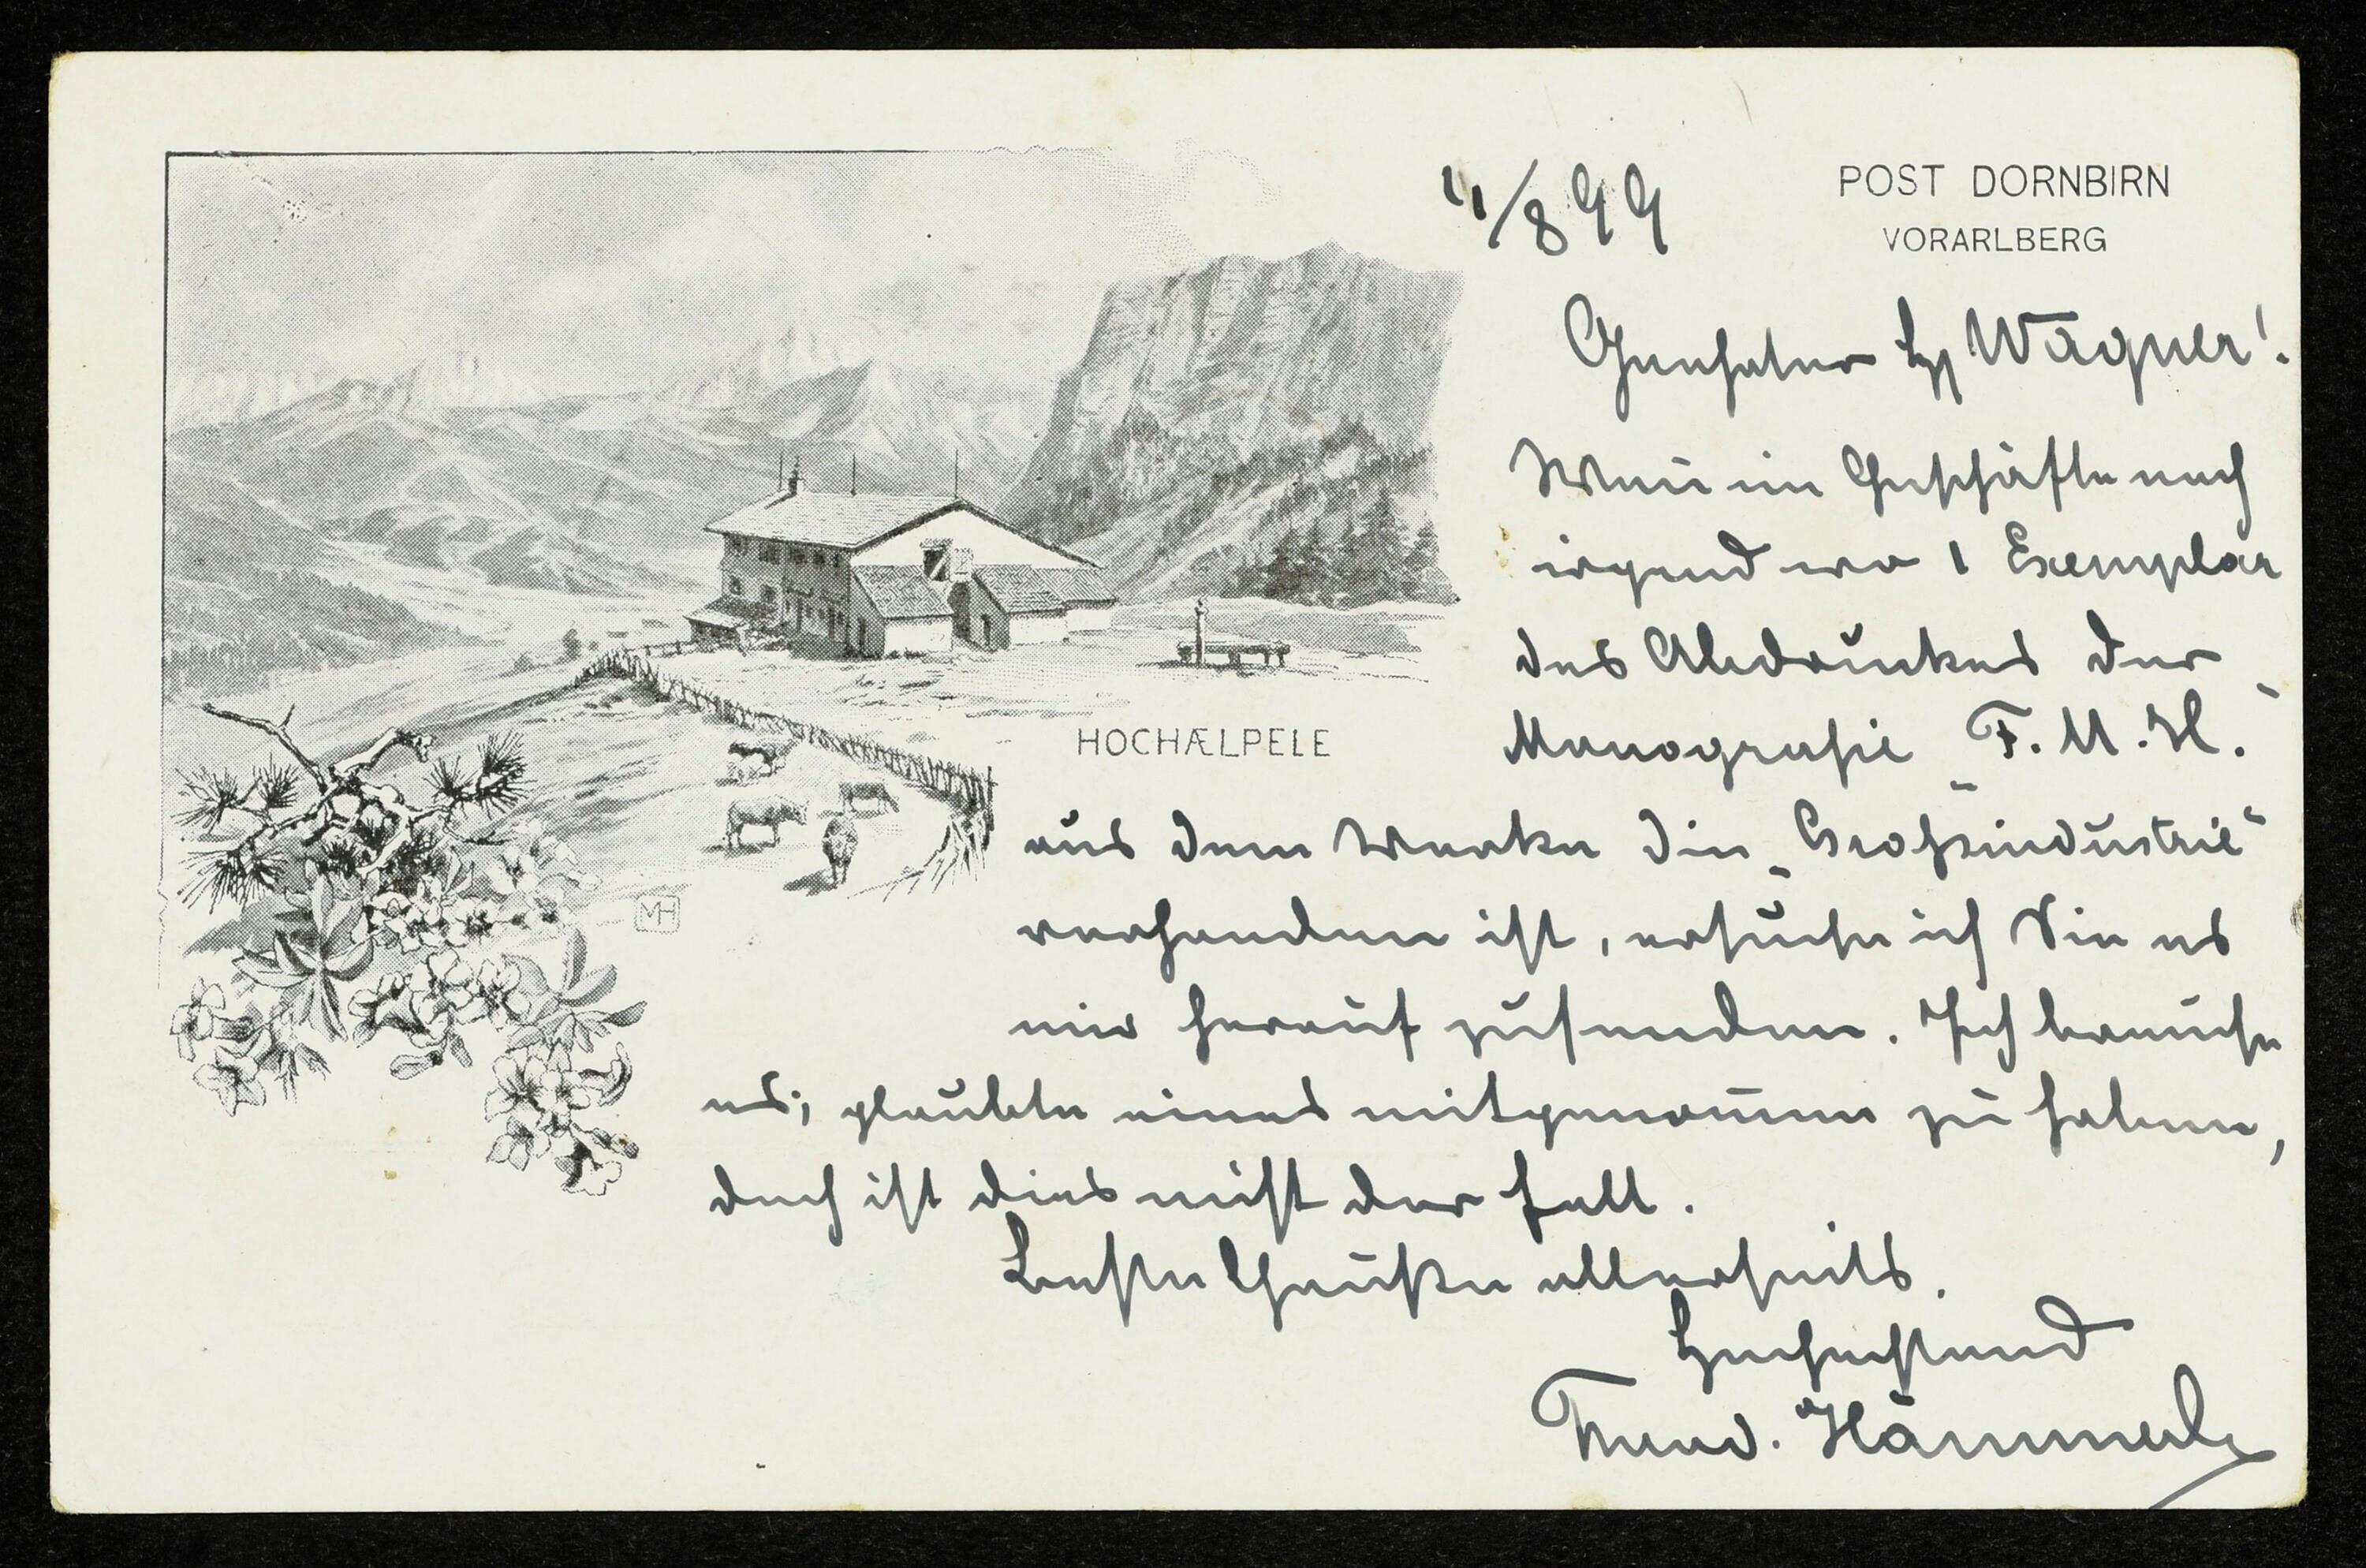 11/8 99
POST DORNBIRN
VORARLBERG
Geehrter H Wagner!
Wenn im Geschäfte noch
irgend wo 1 Exemplar
des Abdruckes der
Monografie „F. M. H."
HOCHÆLPELE
aus dem Werke die „Großindustrie"
MH
vorhanden ist, ersuche ich Sie es
mir herauf zusenden. Ich brauche
es; glaubte eines mitgenom̄en zu haben,
doch ist dies nicht der Fall.
Beste Grüße allerseits.
Hochachtend
Hämmerle